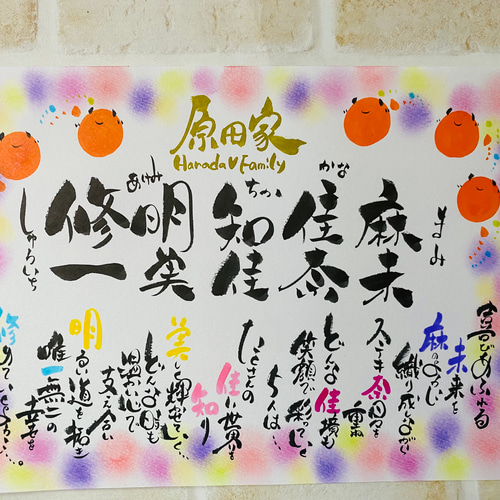 原田家
Harada♥Family
麻未
まみ
佳奈
かな
知佳
ちか
明美
あけみ
修一
しゅういち
喜びあふれる
未来を
麻のように
織り成しながら
ステキな奈日を
重ね
どんな佳境も
笑顔で彩っていく
ちんは…
たくさんの
佳世界を
知り
美しく輝かせていく…
どんな時も
温かい心で
支え合い
明るい道を拓き
唯一無二の
幸せを
修めていくだろう…。